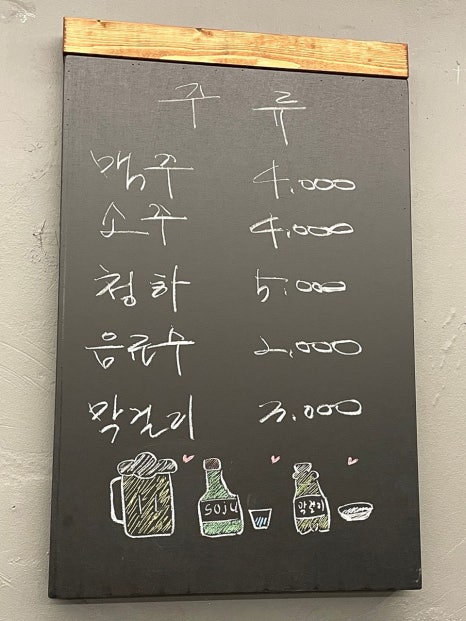 주류
맥주 4.000
소주 4.000
청하 5.000
음료수 2.000
막걸리 3.000
soju
막걸리